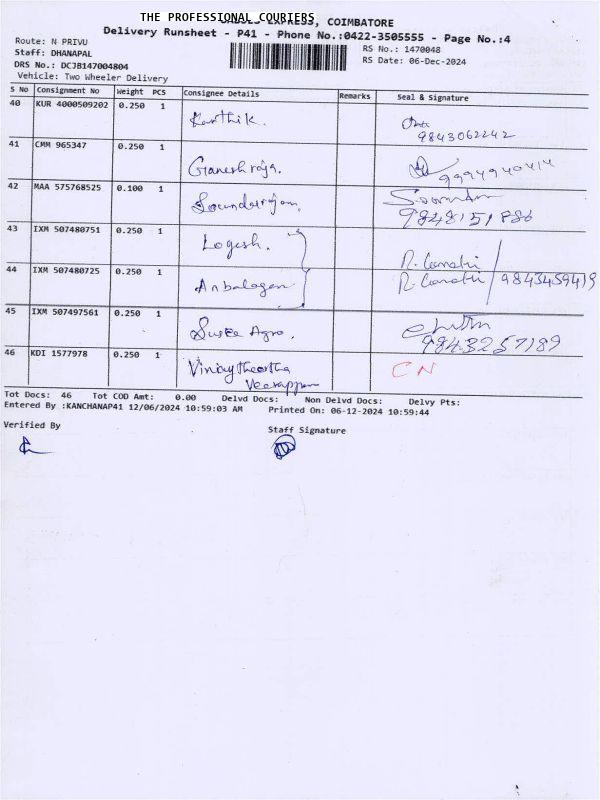 THE PROFESSIONAL COURIERS
EXPRESS, COIMBATORE
Delivery Runsheet - P41 - Phone No.:0422-3505555 - Page No.:4
Route: N PRIVU
RS No.: 1470048
Staff: DHANAPAL
RS Date: 06-Dec-2024
DRS No.: DCJB147004804
Vehicle: Two Wheeler Delivery
S No Consignment No Weight PCS Consignee Details Remarks Seal & Signature
40 KUR 4000509202 0.250 1 Karthik.
9843062242
41 CMM 965347 0.250 1 Ganeshraja.
9994940414
42 MAA 575768525 0.100 1 Soundarrajan.
43 IXM 507480751 0.250 1 Logesh.
44 IXM 507480725 0.250 1 Anbalagan 9843459419
45 IXM 507497561 0.250 1
9843257189
46 KDI 1577978 0.250 1 CN
Veerappan
Tot Docs: 46 Tot COD Amt: 0.00 Delvd Docs: Non Delvd Docs: Delvy Pts:
Entered By :KANCHANAP41 12/06/2024 10:59:03 AM Printed On: 06-12-2024 10:59:44
Verified By
Staff Signature